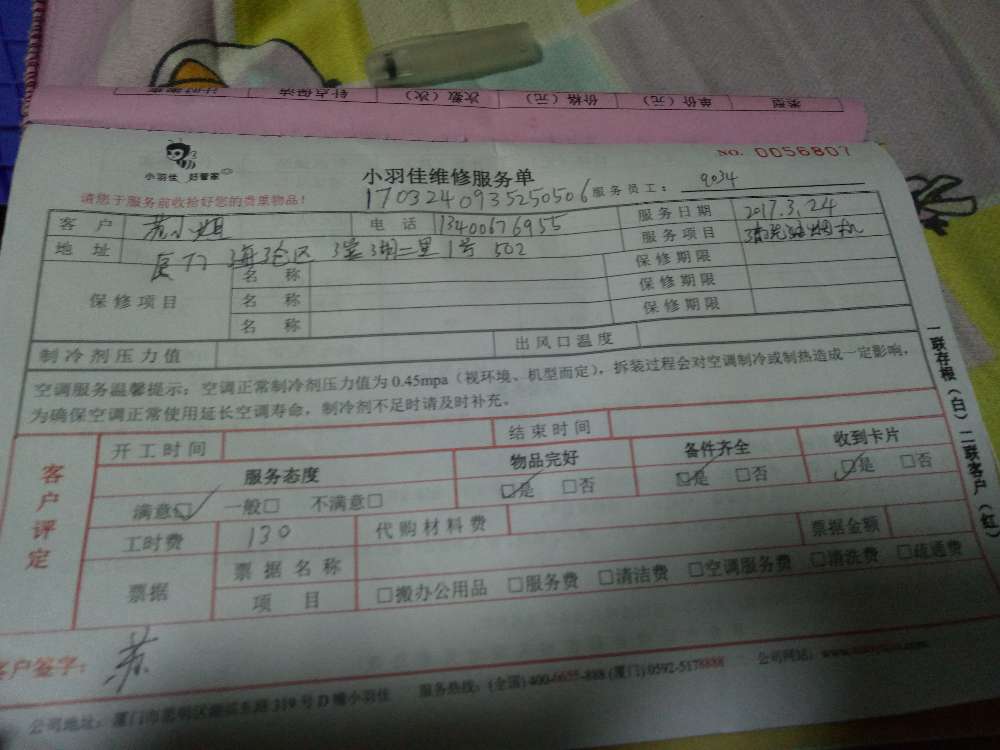 类型 单价（元） 价格（元） 次数（次）
NO. 0056807
小羽佳 好管家
小羽佳维修服务单
请您于服务前收拾好您的贵重物品！
1703240935250506
服务员工： 9034
客户 苏小姐 电话 13400676955 服务日期 2017.3.24
地址 厦门 海沧区 1号 502 服务项目 清洗油烟机
保修项目
名称 保修期限
名称 保修期限
名称 保修期限
制冷剂压力值 出风口温度
空调服务温馨提示：空调正常制冷剂压力值为 0.45mpa（视环境、机型而定），拆装过程会对空调制冷或制热造成一定影响，
为确保空调正常使用延长空调寿命，制冷剂不足时请及时补充。
一联存根（白）二联客户（红）
客户评定
开工时间 结束时间
服务态度 物品完好 备件齐全 收到卡片
满意□ 一般□ 不满意□ □是 □否 □是 □否 □是 □否
工时费 130 代购材料费 票据金额
票据
票据名称
项目 □搬办公用品 □服务费 □清洁费 □空调服务费 □清洗费 □疏通费
客户签字： 苏
公司地址：厦门市思明区 319号D幢小羽佳 服务热线：(全国) 400-6655-888 (厦门) 0592-5178888 公司网站：